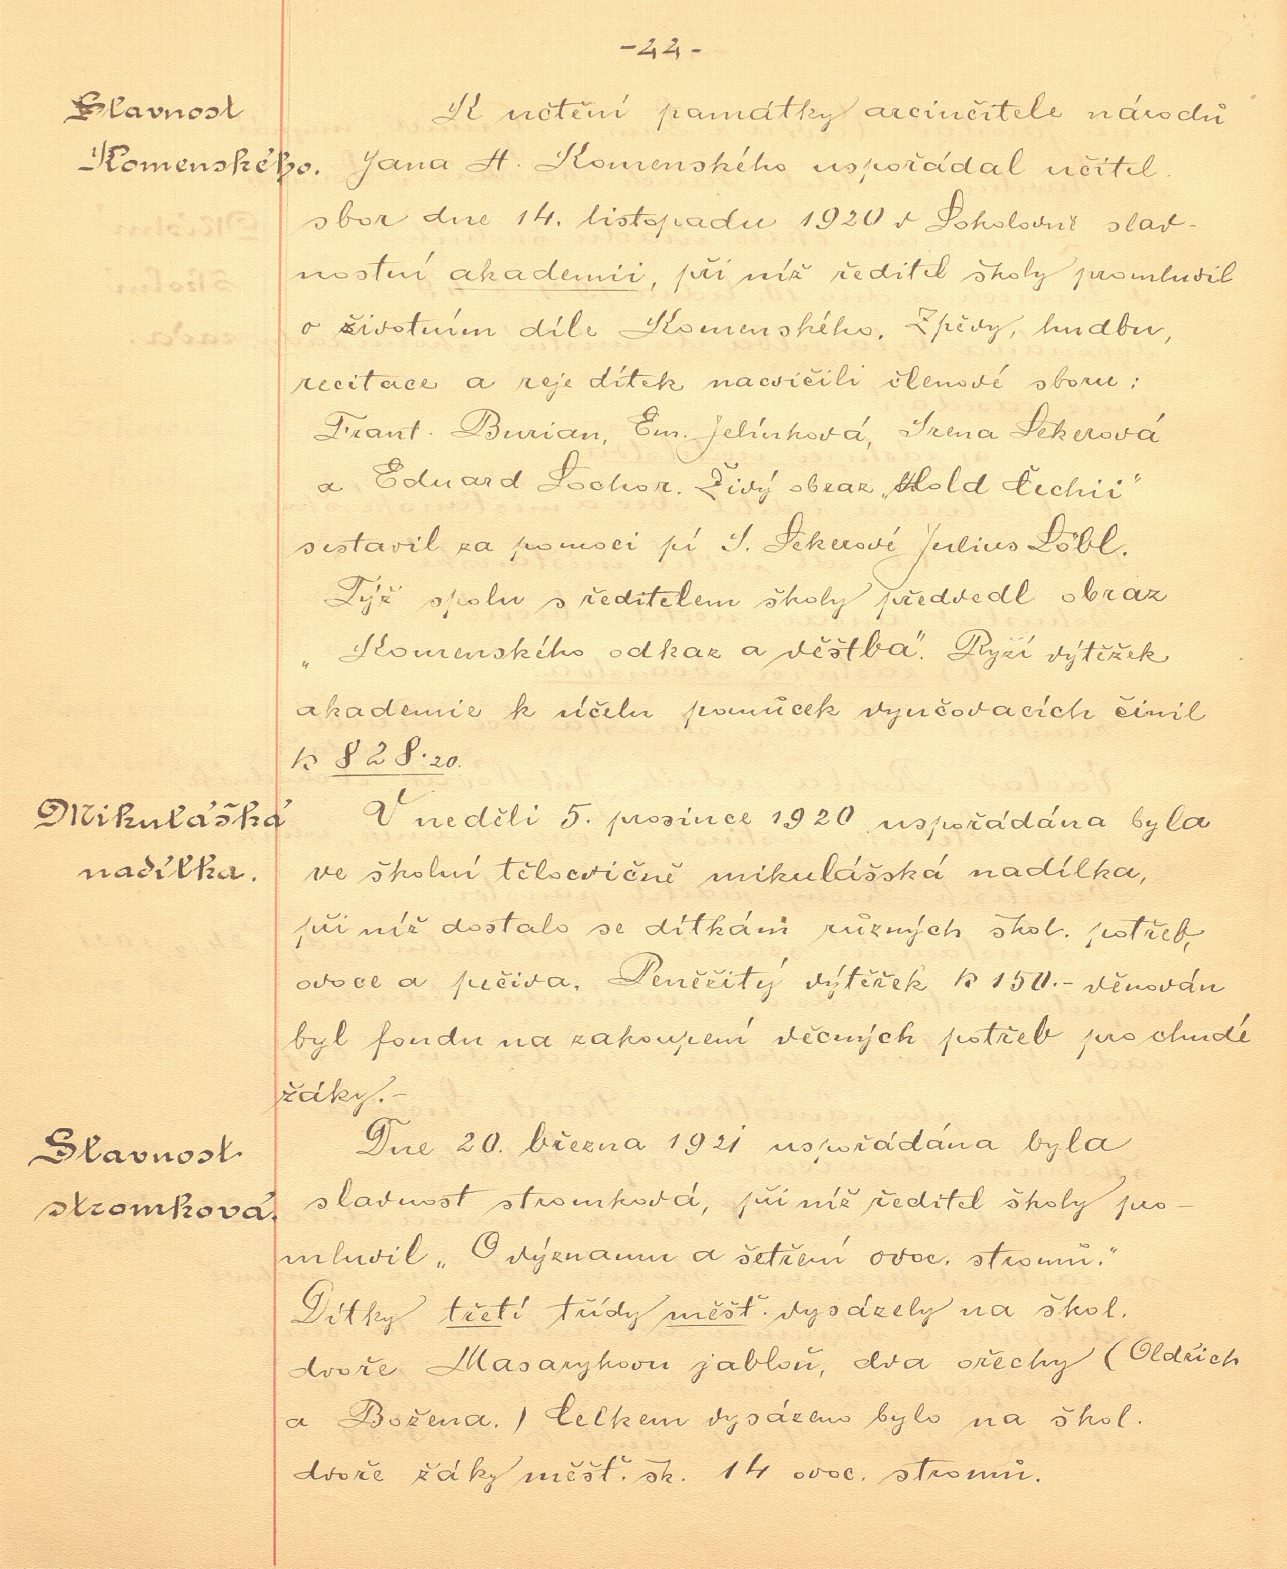 -44-
Slavnost
Komenského.
K uctění památky arciučitele národů
Jana A. Komenského uspořádal učitel.
sbor dne 14. listopadu 1920 v Sokolovně slav-
nostní akademii, při níž ředitel školy promluvil
o životním díle Komenského. Zpěvy, hudbu,
recitace a reje dítek nacvičili členové sboru:
Frant. Burian, Em. Jelínková, Irena Sekerová
a Eduard Sochor. Živý obraz „Hold Čechii"
sestavil za pomoci pí I. Sekerové Julius Löbl.
Týž spolu s ředitelem školy předvedl obraz
„Komenského odkaz a věštba". Ryzí výtěžek
akademie k účelu pomůcek vyučovacích činil
K 828·20.
Mikulášká
nadílka.
V neděli 5. prosince 1920 uspořádána byla
ve školní tělocvičně mikulášská nadílka,
při níž dostalo se dítkám různých škol. potřeb,
ovoce a pečiva. Peněžitý výtěžek K 150.- věnován
byl fondu na zakoupení věcných potřeb pro chudé
žáky.-
Slavnost
stromková.
Dne 20. března 1921 uspořádána byla
slavnost stromková, při níž ředitel školy pro-
mluvil „O významu a šetření ovoc. stromů."
Dítky třetí třídy měšť. vysázely na škol.
dvoře Masarykovu jabloň, dva ořechy (Oldřich
a Božena.) Celkem vysázeno bylo na škol.
dvoře žáky měšť. šk. 14 ovoc. stromů.